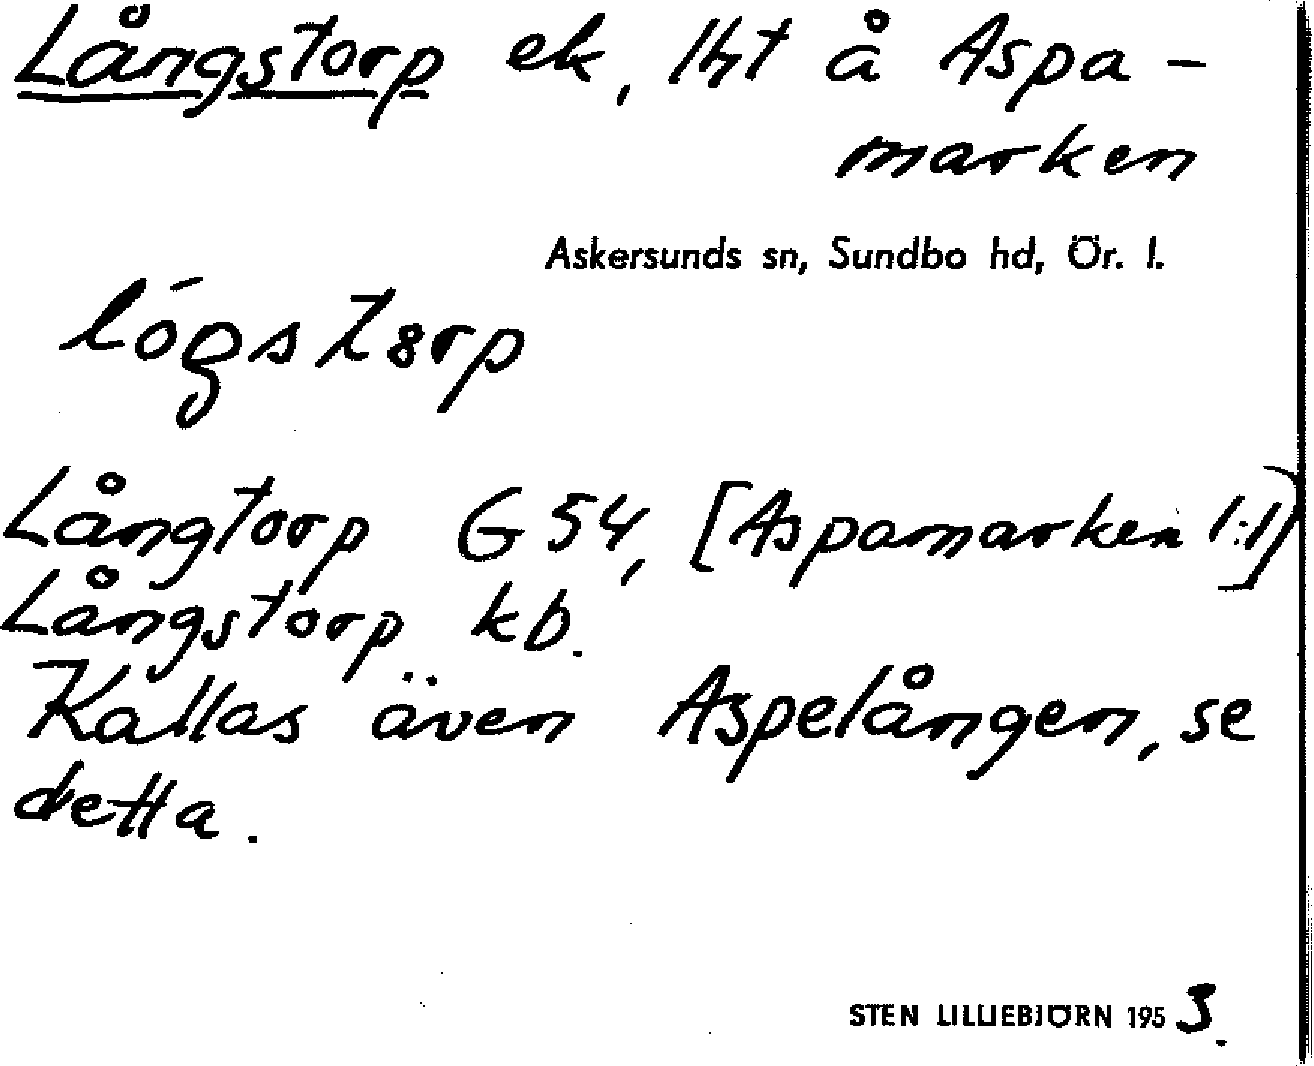 Långstorp ek, lht å Aspa-
marken
Askersunds sn, Sundbo hd, Ör. l.
Långtorp G 54, [Aspamarken 1:1]
Långstorp kb.
Kallas även Aspelången, se
detta.
STEN LILLIEBJÖRN 1953.